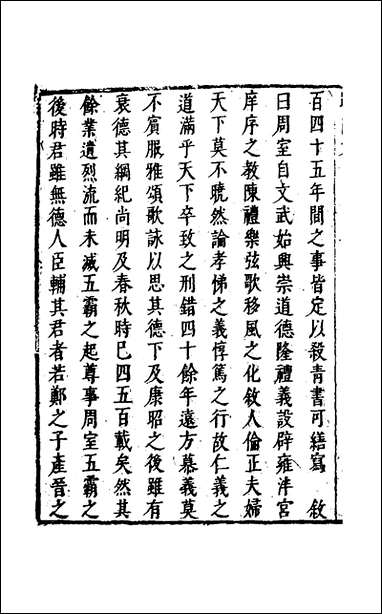 百四十五年間之事皆定以殺青書可繕寫　敘
曰周室自文武始興崇道德隆禮義設辟雍泮宮
庠序之教陳禮樂弦歌移風之化敘人倫正夫婦
天下莫不曉然論孝悌之義惇篤之行故仁義之
道滿乎天下卒致之刑錯四十餘年遠方慕義莫
不賓服雅頌歌詠以思其德下及康昭之後雖有
衰德其綱紀尚明及春秋時已四五百載矣然其
餘業遺烈流而未滅五霸之起尊事周室五霸之
後時君雖無德人臣輔其君者若鄭之子產晉之